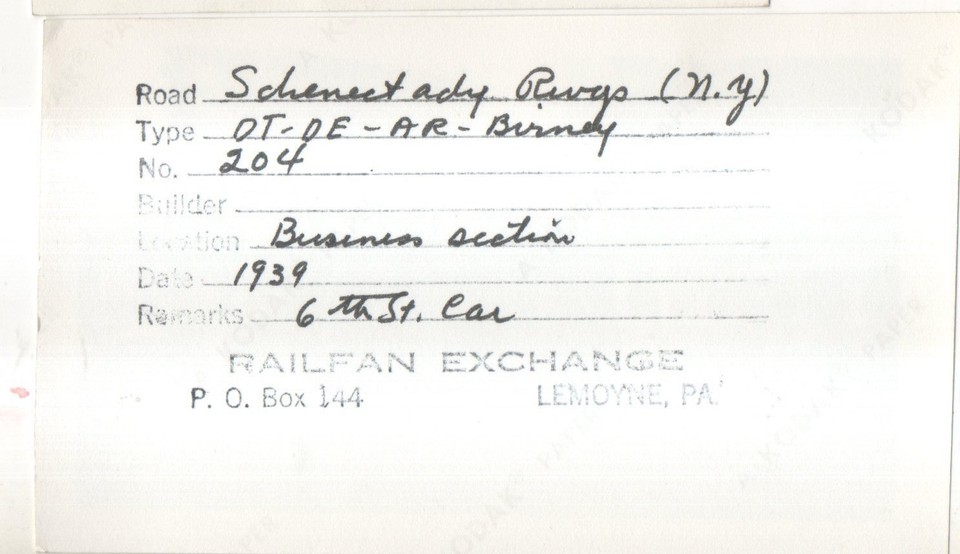 Road Schenectady Rwys (N.Y)
Type DT-DE-AR-Birney
No. 204
Builder
Location Business section
Date 1939
Remarks 6th St. Car
RAILFAN EXCHANGE
P. O. Box 144 LEMOYNE, PA.